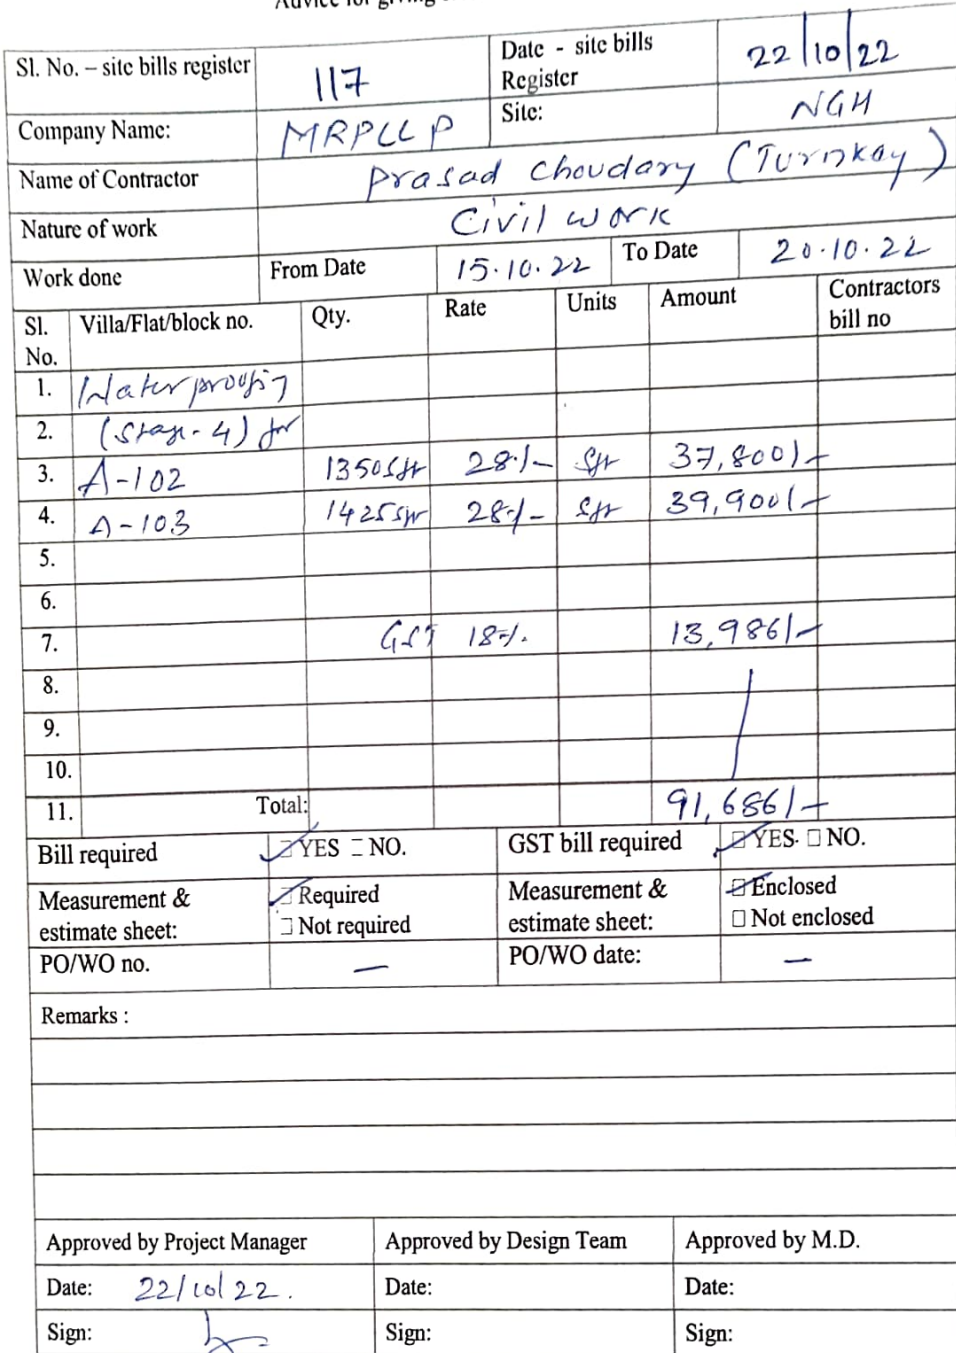 Advice for giving
Sl. No. – site bills register 117 Date - site bills Register 22/10/22
Company Name: MRPLLP Site: NGH
Name of Contractor Prasad Choudary (Turnkay)
Nature of work Civil work
Work done From Date 15.10.22 To Date 20.10.22
Sl. No. Villa/Flat/block no. Qty. Rate Units Amount Contractors bill no
1. Waterproofing
2. (Stage-4) for
3. A-102 1350 Sft 28/- Sft 37,800/-
4. A-103 1425 Sft 28/- Sft 39,900/-
5.
6.
7. GST 18%. 13,986/-
8.
9.
10.
11. Total: 91,686/-
Bill required YES NO. GST bill required YES. NO.
Measurement & estimate sheet: Required Not required Measurement & estimate sheet: Enclosed Not enclosed
PO/WO no. — PO/WO date: —
Remarks :
Approved by Project Manager Approved by Design Team Approved by M.D.
Date: 22/10/22. Date: Date:
Sign: Sign: Sign: